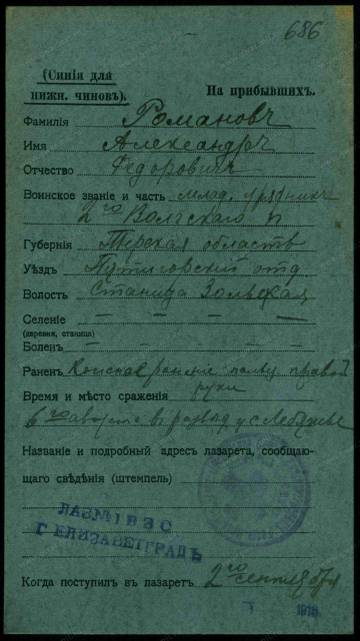 686
(Синія для
нижн. чиновъ).
На прибывшихъ.
Фамилія Романовъ
Имя Александръ
Отчество Федоровичъ
Воинское званіе и часть млад. урядникъ
2го Волгскаго п
Губернія Терская область
Уѣздъ отд
Волость Станица Зольская
Селеніе — — —
(деревня, станица)
Боленъ — — — —
Раненъ правой
руки
Время и мѣсто сраженія
6го
Названіе и подробный адресъ лазарета, сообщаю-
щаго свѣдѣнія (штемпель)
Г ЕЛИЗАВЕТГРАДЪ
Когда поступилъ въ лазаретъ 2го сентября